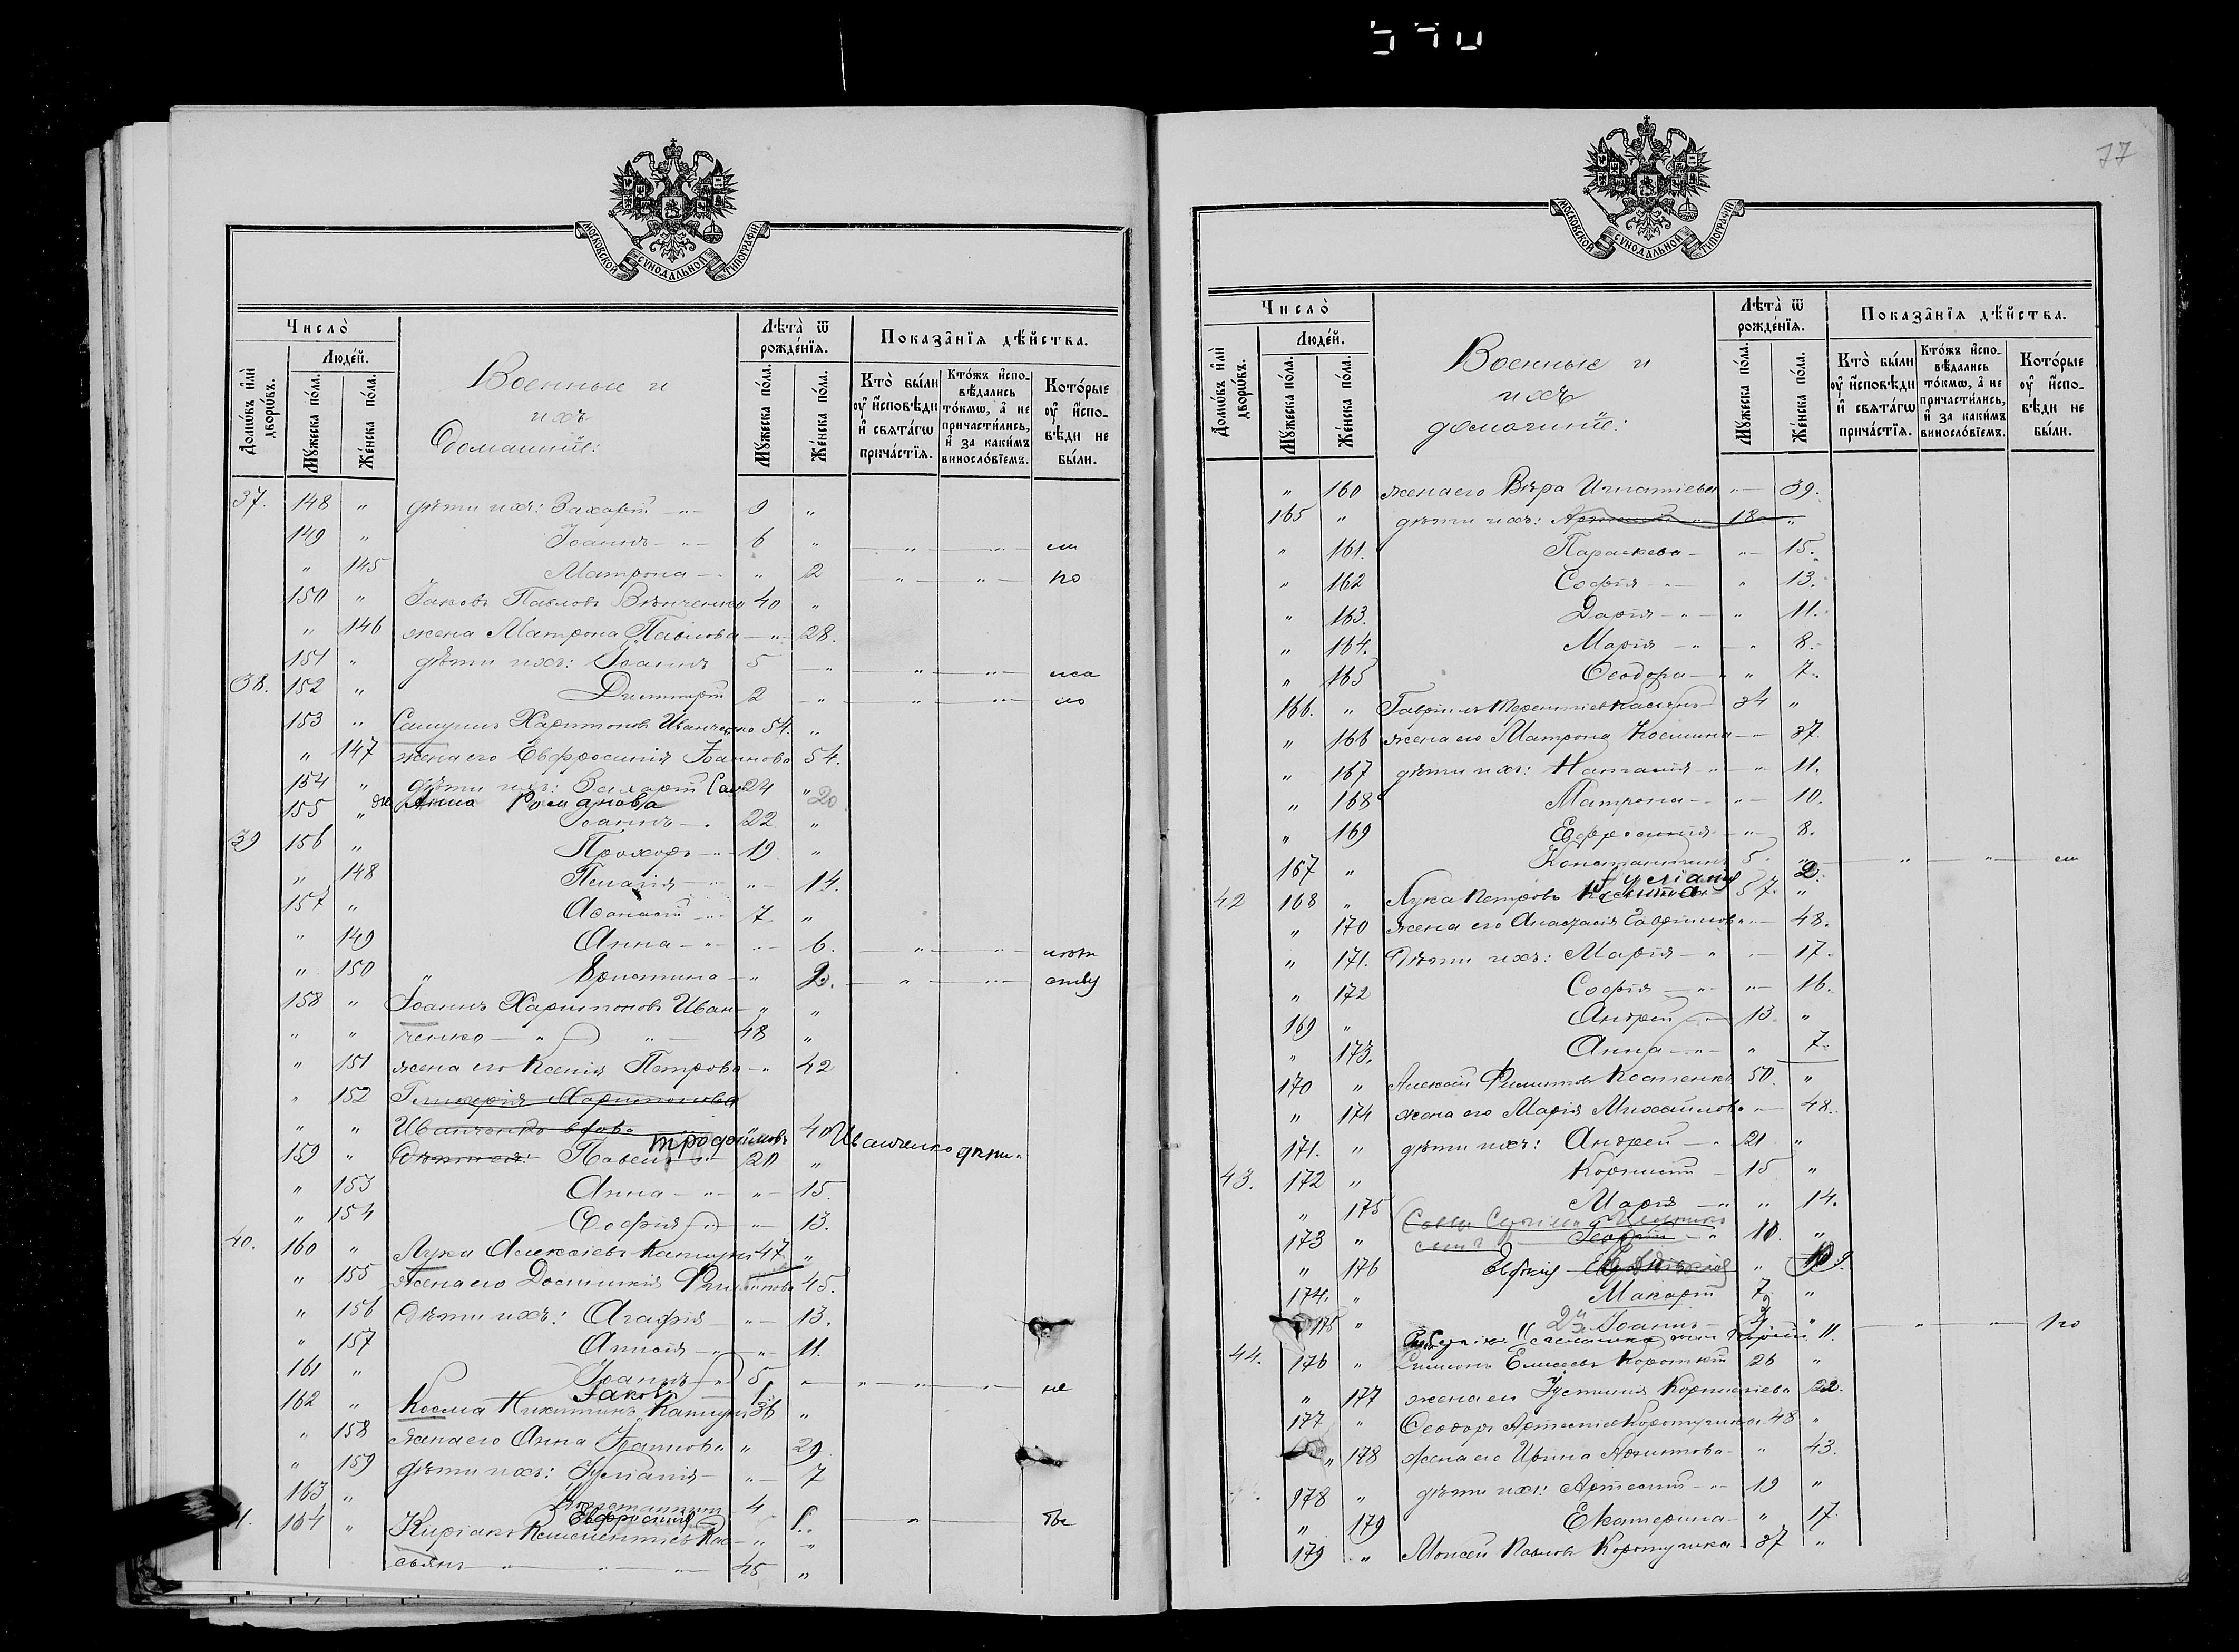 МОСКОВСКОЙ СѴНОДАЛЬНОЙ ТИПОГРАФІИ
Число̀
Людє́й.
Домѡ́въ и҆лѝ дворѡ́въ.
Мꙋ́жеска по́ла.
Же́нска по́ла.
Военные и
ихъ
домашніе:
Лѣ́та ѿ рождє́нїѧ.
Мꙋ́жеска по́ла.
Же́нска по́ла.
Показа̑нїѧ дѣ́йства.
Кто̀ бы́ли ᲂу҆ и҆сповѣ́ди и҆ свѧта́гѡ прича́стїѧ.
Кто́жъ и҆сповѣ́дались то́кмѡ, а҆ не причасти́лись, и҆ за каки́мъ винослові́емъ.
Кото́рые ᲂу҆ и҆сповѣ́ди не бы́ли.
37. 148 " дѣти ихъ: Захарій 9 "
149 " Іоаннъ 6 "
" 145 Матрона " 2 " " по
150 " Іаковъ Павловъ 40 "
" 146 жена Матрона Павлова 28.
151 " дѣти ихъ: Іоаннъ 5
38. 152 " Димитрій 2
153 " Самуилъ Харитоновъ Иванченко 54. "
" 147 жена его Евфросинія Іоаннова 54.
154 " дѣти ихъ: 24 "
Анна Романова 20
155 " Іоаннъ 22 "
39 156 " Прохоръ 19 "
" 148 Пелагія " 14.
157 " Аѳанасій 7 "
" 149 Анна 6.
" 150 " Христина " 2.
158 " Іоаннъ Харитоновъ Иван- " "
" " ченко 48 "
" 151 жена его Ксенія Петрова " 42
" 152 Гликерія Харитонова
" " Иванченко вдова 40
159 " Павелъ Трофимовъ 20 " Иванченко
" 153 Анна 15.
" 154 Софія 13.
40. 160 " Лука Алексіевъ 47 "
" 155 жена его Домникія Филиппова 45.
" 156 Дѣти ихъ: Агафія 13.
" 157 Анисія 11.
161 " Іоаннъ 5 не
Іаковъ 1
162 " Косма Никитинъ 36 "
" 158 жена его Анна Іоаннова " 29
" 159 дѣти ихъ: Іуліанія 7
163 " Константинъ 4
Евфросинія 1
164 " Киріакъ Климентіевъ Кас- " "
сьянъ 45 "
77
МОСКОВСКОЙ СѴНОДАЛЬНОЙ ТИПОГРАФІИ
Число̀
Людє́й.
Домѡ́въ и҆лѝ дворѡ́въ.
Мꙋ́жеска по́ла.
Же́нска по́ла.
Военные и
ихъ
домашніе:
Лѣ́та ѿ рождє́нїѧ.
Мꙋ́жеска по́ла.
Же́нска по́ла.
Показа̑нїѧ дѣ́йства.
Кто̀ бы́ли ᲂу҆ и҆сповѣ́ди и҆ свѧта́гѡ прича́стїѧ.
Кто́жъ и҆сповѣ́дались то́кмѡ, а҆ не причасти́лись, и҆ за каки́мъ винослові́емъ.
Кото́рые ᲂу҆ и҆сповѣ́ди не бы́ли.
" 160 жена его Вѣра Игнатіева 39.
165 " дѣти ихъ: Артемій 18 "
" 161. Параскева 15.
" 162 Софія " 13.
" 163. Дарія " 11.
" 164. Марія " 8.
" 165 Ѳеодора " 7.
166. " Гавріилъ Терентіевъ Касьянъ 34 "
" 166 жена его Матрона Космина 37.
" 167 дѣти ихъ: Наталія " 11.
" 168 Матрона 10.
" 169 Ефросинія " 8.
167 " Константинъ 5. "
Іуліанія 2.
42 168 " Лука Петровъ 57. "
" 170 жена его Анастасія Гавриилова 48.
" 171. Дѣти ихъ: Марія 17.
" 172 Софія 16.
169 " Андрей 13 "
" 173. Анна " 7.
170 " Алексій Филипповъ Костенко 50. "
" 174 жена его Марія Михайлова 48.
171. " дѣти ихъ: Андрей 21 "
43. 172 " Корнилій 15 "
" 175 Марія " 14.
173 " Георгій 10. "
" 176 Евдокія " 9.
174. " Макарій 7. "
175 " Іоаннъ " по
44. 176 " Симеонъ Елисеевъ Короткій 26 "
" 177 жена его Іустинія Корниліева 22.
177 " Ѳеодоръ Коротушка 48 "
" 178 жена его Ирина " 43.
178 " дѣти ихъ: Артемій 19 "
" 179 Екатерина " 17.
179 " Моисей Павловъ Коротушка 37 "